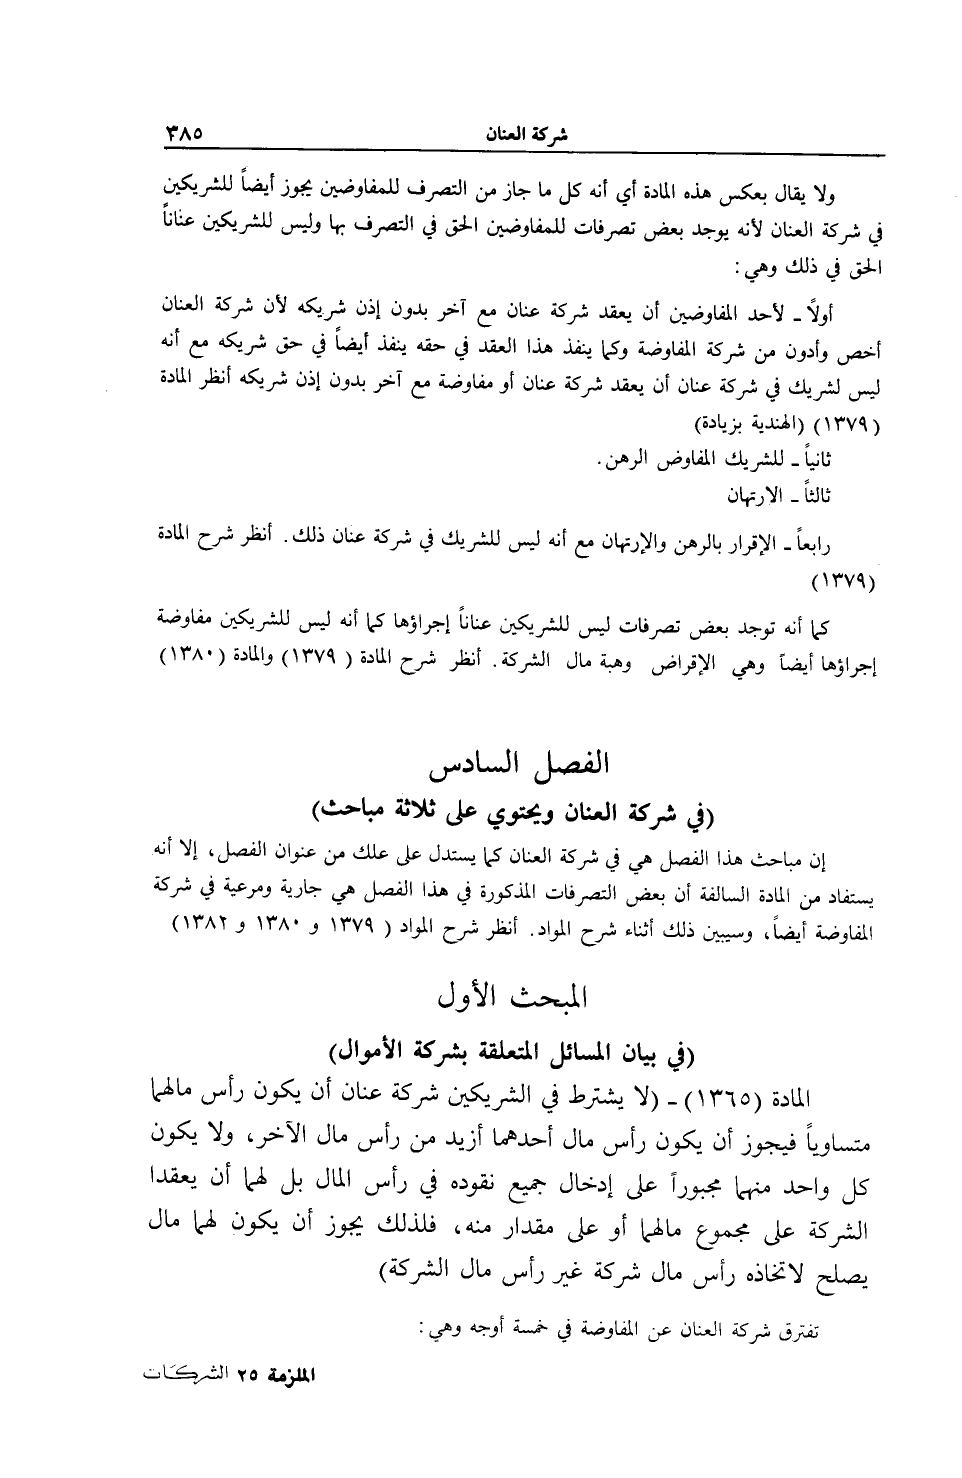 شركة العنان ٣٨٥
ولا يقال بعكس هذه المادة أي أنه كل ما جاز من التصرف للمفاوضين يجوز أيضاً للشريكين
في شركة العنان لأنه يوجد بعض تصرفات للمفاوضين الحق في التصرف بها وليس للشريكين عناناً
الحق في ذلك وهي:
أولاً ـ لأحد المفاوضين أن يعقد شركة عنان مع آخر بدون إذن شريكه لأن شركة العنان
أخص وأدون من شركة المفاوضة وكما ينفذ هذا العقد في حقه ينفذ أيضاً في حق شريكه مع أنه
ليس لشريك في شركة عنان أن يعقد شركة عنان أو مفاوضة مع آخر بدون إذن شريكه أنظر المادة
(١٣٧٩) (الهندية بزيادة)
ثانياً ـ للشريك المفاوض الرهن.
ثالثاً ـ الارتهان
رابعاً ـ الإقرار بالرهن والإرتهان مع أنه ليس للشريك في شركة عنان ذلك. أنظر شرح المادة
(١٣٧٩)
كما أنه توجد بعض تصرفات ليس للشريكين عناناً إجراؤها كما أنه ليس للشريكين مفاوضة
إجراؤها أيضاً وهي الإقراض وهبة مال الشركة. أنظر شرح المادة (١٣٧٩) والمادة (١٣٨٠)
الفصل السادس
(في شركة العنان ويحتوي على ثلاثة مباحث)
إن مباحث هذا الفصل هي في شركة العنان كما يستدل على علك من عنوان الفصل، إلا أنه
يستفاد من المادة السالفة أن بعض التصرفات المذكورة في هذا الفصل هي جارية ومرعية في شركة
المفاوضة أيضاً، وسيبين ذلك أثناء شرح المواد. أنظر شرح المواد (١٣٧٩ و ١٣٨٠ و ١٣٨٢)
المبحث الأول
(في بيان المسائل المتعلقة بشركة الأموال)
المادة (١٣٦٥) ـ (لا يشترط في الشريكين شركة عنان أن يكون رأس مالهما
متساوياً فيجوز أن يكون رأس مال أحدهما أزيد من رأس مال الآخر، ولا يكون
كل واحد منهما مجبوراً على إدخال جميع نقوده في رأس المال بل لهما أن يعقدا
الشركة على مجموع مالهما أو على مقدار منه، فلذلك يجوز أن يكون لهما مال
يصلح لاتخاذه رأس مال شركة غير رأس مال الشركة)
تفترق شركة العنان عن المفاوضة في خمسة أوجه وهي:
الملزمة ٢٥ الشركات